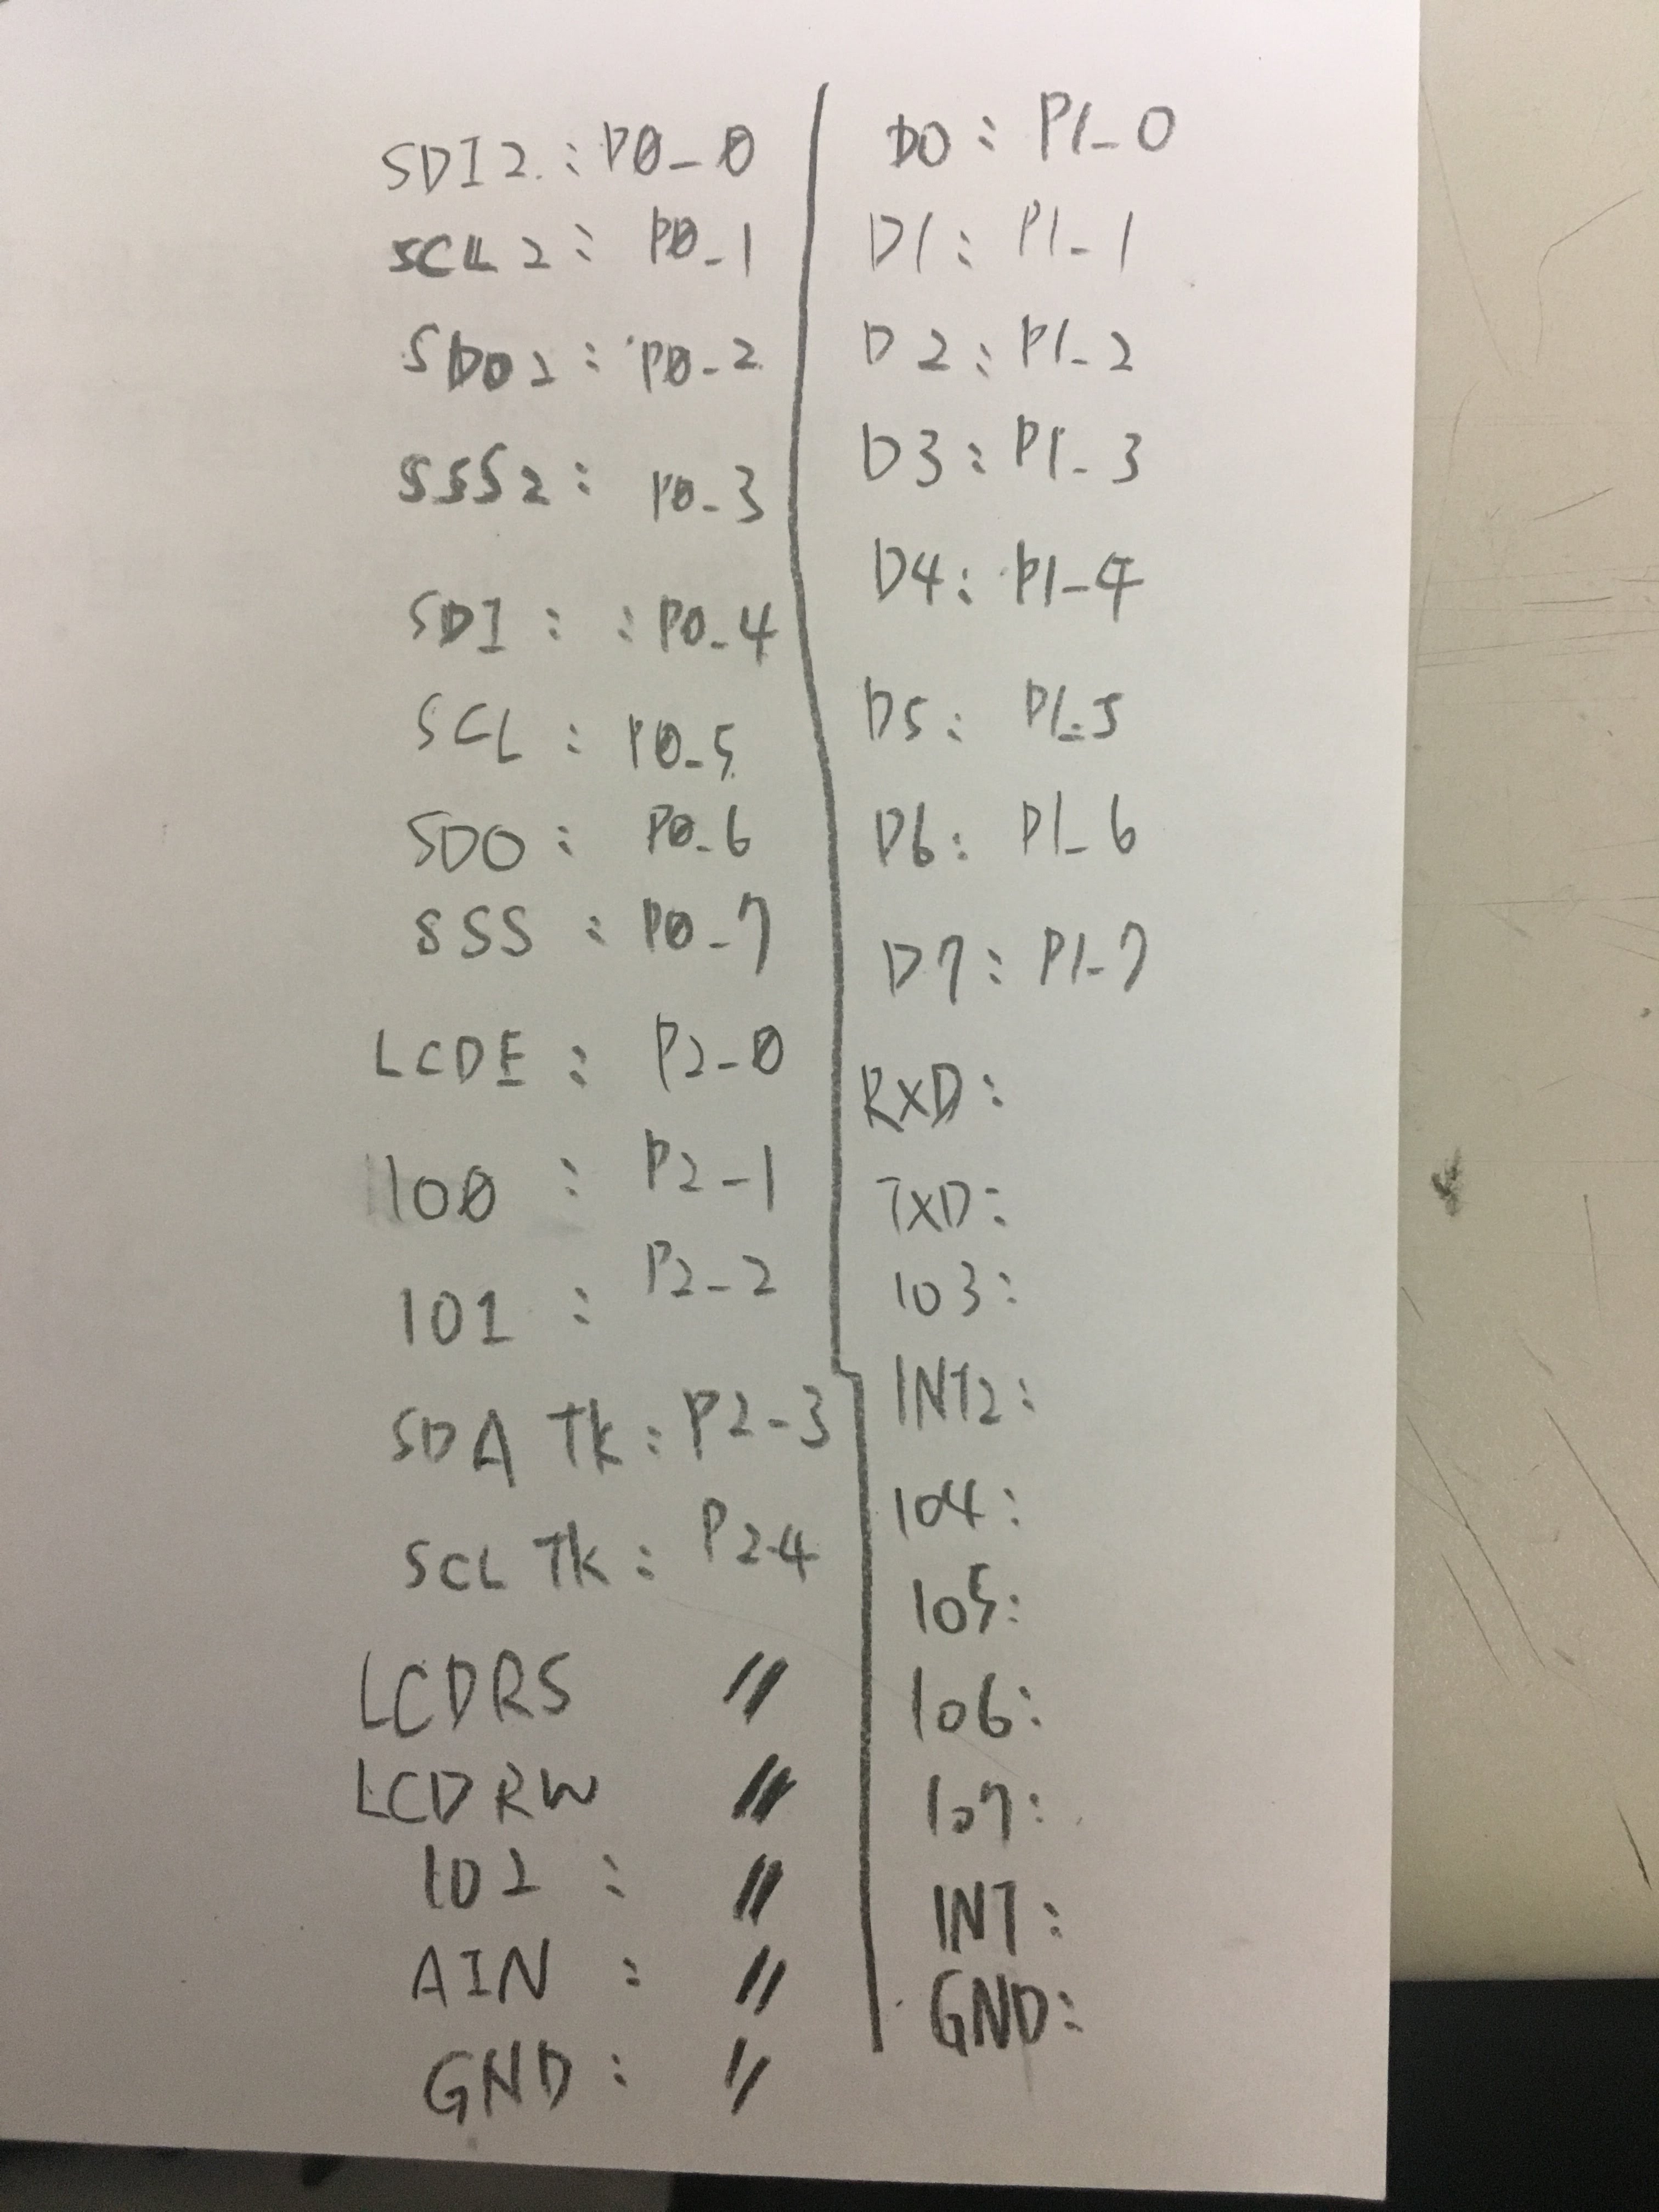 SDI2 : P0_0
SCL2 : P0_1
SDO2 : P0_2
SSS2 : P0_3
SDI : : P0_4
SCL : P0_5
SDO : P0_6
SSS : P0_7
LCDE : P2_0
IO0 : P2_1
IO1 : P2_2
SDA TK : P2_3
SCL TK : P2_4
LCDRS //
LCDRW //
IO2 : //
AIN : //
GND : //
D0 : P1_0
D1 : P1_1
D2 : P1_2
D3 : P1_3
D4 : P1_4
D5 : P1_5
D6 : P1_6
D7 : P1_7
RXD :
TXD :
IO3 :
INT2 :
IO4 :
IO5 :
IO6 :
IO7 :
INT :
GND :